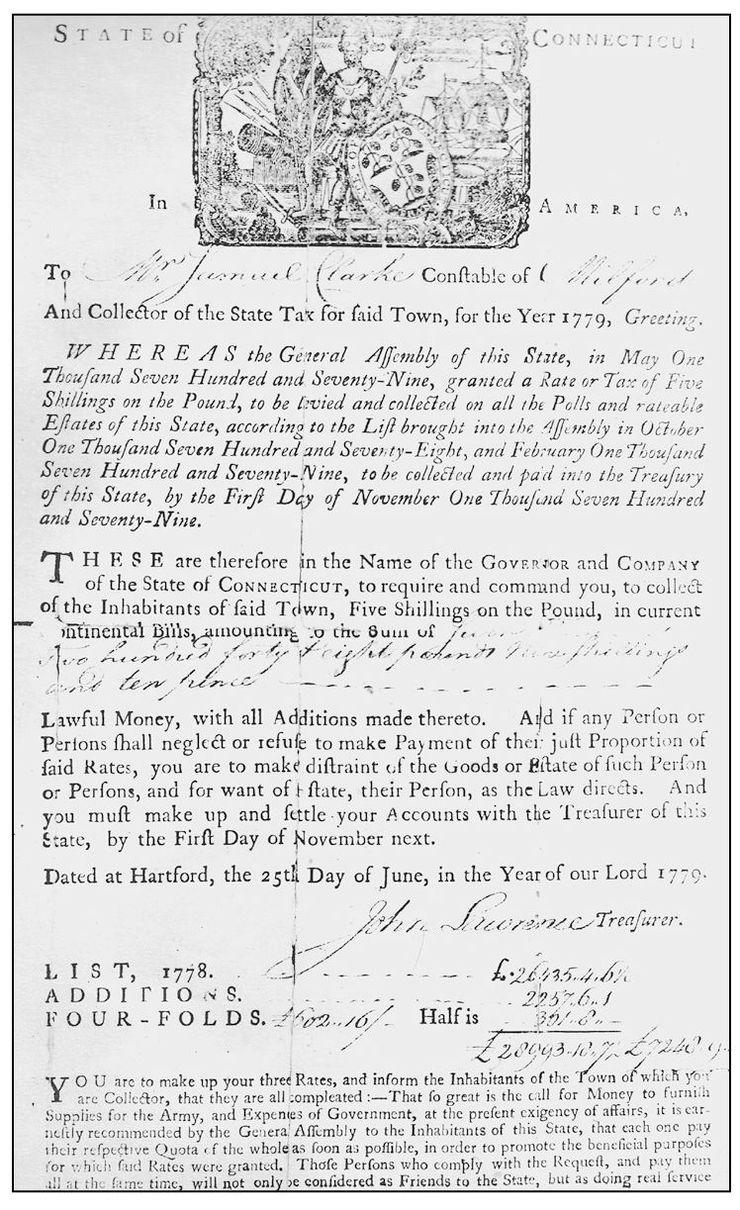 STATE of CONNECTICUT
In AMERICA,
To Mr. Samuel Clarke Conſtable of Milford
And Collector of the State Tax for ſaid Town, for the Year 1779, Greeting.
WHEREAS the General Aſſembly of this State, in May One
Thouſand Seven Hundred and Seventy-Nine, granted a Rate or Tax of Five
Shillings on the Pound, to be levied and collected on all the Polls and rateable
Eſtates of this State, according to the Liſt brought into the Aſſembly in October
One Thouſand Seven Hundred and Seventy-Eight, and February One Thouſand
Seven Hundred and Seventy-Nine, to be collected and paid into the Treaſury
of this State, by the Firſt Day of November One Thouſand Seven Hundred
and Seventy-Nine.
THESE are therefore in the Name of the GOVERNOR and COMPANY
of the State of CONNECTICUT, to require and command you, to collect
of the Inhabitants of ſaid Town, Five Shillings on the Pound, in current
Continental Bills, amounting to the Sum of
two hundred forty & eight pounds Nine ſhillings
and ten pence
Lawful Money, with all Additions made thereto. And if any Perſon or
Perſons ſhall neglect or refuſe to make Payment of their juſt Proportion of
ſaid Rates, you are to make diſtraint of the Goods or Eſtate of ſuch Perſon
or Perſons, and for want of Eſtate, their Perſon, as the Law directs. And
you muſt make up and ſettle your Accounts with the Treaſurer of this
State, by the Firſt Day of November next.
Dated at Hartford, the 25th Day of June, in the Year of our Lord 1779.
John Lawrence Treaſurer.
LIST, 1778. £.26435.4.6½
ADDITIONS. 2257.6.1
FOUR-FOLDS. £602.16/- Half is 301.8.-
£28993.18.7½ £7248.9.
YOU are to make up your three Rates, and inform the Inhabitants of the Town of which you
are Collector, that they are all compleated :—That ſo great is the call for Money to furniſh
Supplies for the Army, and Expences of Government, at the preſent exigency of affairs, it is ear-
neſtly recommended by the General Aſſembly to the Inhabitants of this State, that each one pay
their reſpective Quota of the whole as ſoon as poſſible, in order to promote the beneficial purpoſes
for which ſaid Rates were granted. Thoſe Perſons who comply with the Requeſt, and pay them
all at the ſame time, will not only be conſidered as Friends to the State, but as doing real ſervice